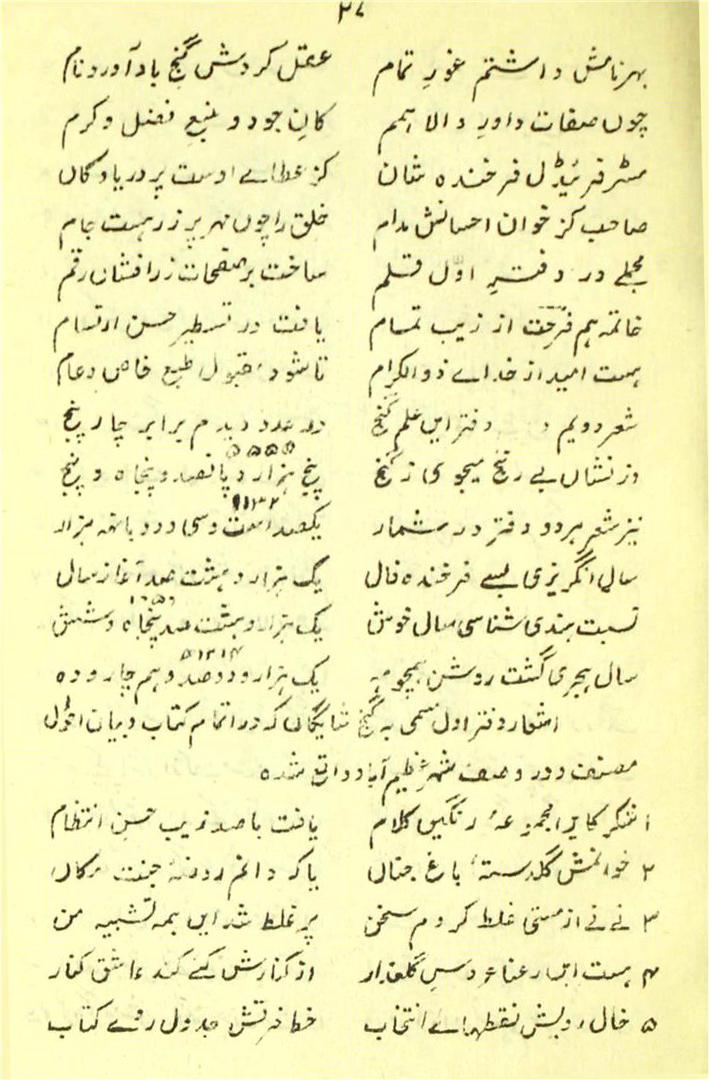 ۲۷
بہر نامش داشتم غورِ تمام عقل کردش گنجِ باد آورد نام
چوں صفات داورِ والا ہمم کانِ جود و منبعِ فضل و کرم
مسٹر فرئیڈل فرخندہ شان کز عطاے اوست پر دریا و کاں
صاحب کز خوان احسانش مدام خلق را چوں مہر پر زر ہست جام
مجملے در دفترِ اوّل قلم ساخت بر صفحات زر افشاں رقم
خاتمہ ہم از زیب تمام یافت در تسطیر حسن ارتسام
ہست امید از خداے ذوالکرام تا شود مقبول طبع خاص و عام
شعر دویم دفتر ایں علم گنج در عدد دیدم برابر چار پنج
۵۵۵۵
ور نشاں بے رنج میجوی ز گنج پنج ہزار و پانصد و پنجاہ و پنج
۹۱۳۲
نیز شعر ہر دو دفتر در شمار یکصد است و سی و دو با نہ ہزار
سال انگریزی بسے فرخندہ فال یک ہزار و ہشت صد آغاز سال
نسبت ہندی شناسی سال خوش یک ہزار و ہشت صد پنجاہ و شش
۱۲۱۴
سال ہجری گشت روشن ہمچو مہ یک ہزار و دو صد و ہم چار و دہ
اشعار دفتر اول مسمی بہ گنج شایگاں کہ در اتمام کتاب و بیان احوال
مصنف و در وصف شہر عظیم آباد واقع شدہ
۱ شکر کایں مجموعۂ رنگیں کلام یافت با صد زیب حسن انتظام
۲ خوانمش گلدستۂ باغ جناں یا کہ دانم روضۂ جنت
۳ نے نے از مستی غلط کردم سخن پر غلط شد ایں ہمہ تشبیہ من
۴ ہست ایں رعنا عروس گلعذار از کنارش کے کند عاشق کنار
۵ خال رویش نقطہاے انتخاب خط جدول روے کتاب